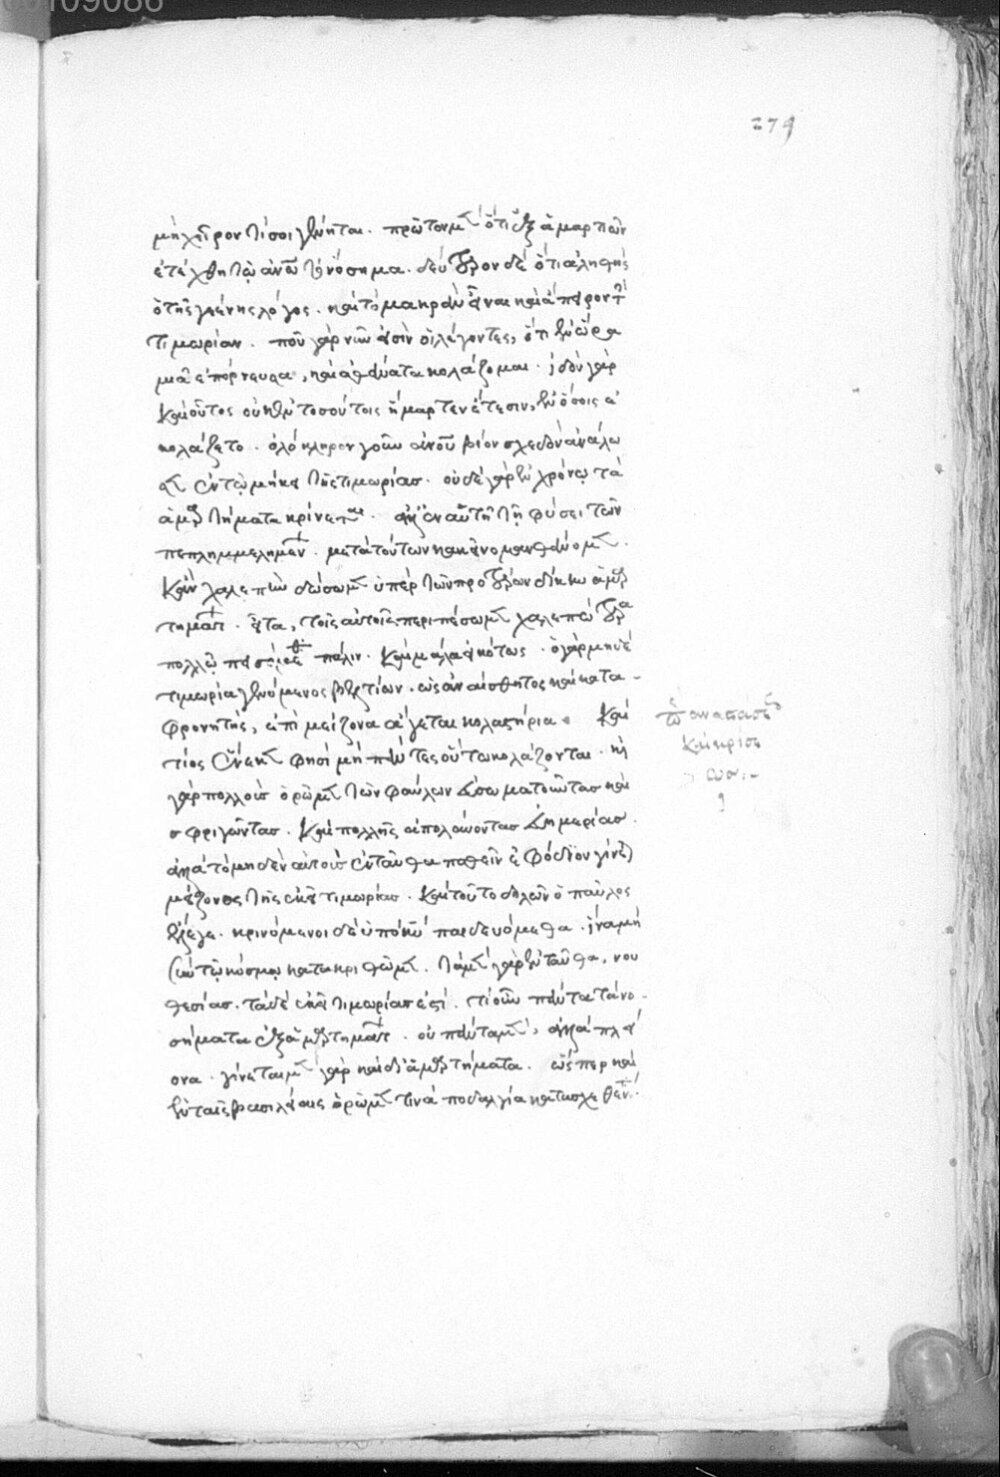 274
μὴ χεῖρόν τί σοι γένηται. πρῶτον μὲν ὅτι ἐξ ἁμαρτιῶν
ἐτέχθη τῷ ἀνῶ τὸ νόσημα. δεύτερον δὲ ὅτι ἀληθὴς
ὁ τῆς γεέννης λόγος. καὶ τὸ μακρὰν εἶναι καὶ ἄπειρον τὴν
τιμωρίαν. ποῦ γάρ νῦν εἰσὶν οἱ λέγοντες, ὅτι ἐν ὥρα
μιᾶ ἐπόρνευσα, καὶ ἀθάνατα κολάζομαι. ἰδοὺ γὰρ
καὶ οὗτος οὐκ ἐν τοσούτοις ἥμαρτεν ἔτεσιν, ἐν ὅσοις ἐ
κολάζετο. ὁλόκληρον γοῦν αὐτοῦ βίον σχεδὸν ἀνάλω
σεν ἐν τῷ μήκει τῆς τιμωρίας. οὐδὲ γὰρ ἐν χρόνῳ τὰ
ἁμαρτήματα κρίνεται. ἀλλ' ἐν αὐτῆ τῆ φύσει τῶν
πεπλημμελημένων. μετὰ τούτων κἀκεῖνο μανθάνομεν.
κἂν χαλεπὴν δώσωμεν ὑπὲρ τῶν προτέρων δίκην ἁμαρ
τημάτων. εἶτα, τοῖς αὐτοῖς περιπέσωμεν χαλεπώτερα
πολλῷ πεισόμεθα πάλιν. καὶ μάλα εἰκότως. ὁ γὰρ μηδὲ
τιμωρία γενόμενος βελτίων. ὡς ἀναίσθητος καὶ κατα-
φρονητὴς, ἐπὶ μείζονα ἄγεται κολαστήρια. καὶ
τίνος ἕνεκεν φησὶ μὴ πάντες οὕτω κολάζονται. καὶ
γὰρ πολλοὺς ὁρῶμεν τῶν φαύλων εὐσωματοῦντας καὶ
σφριγῶντας. καὶ πολλῆς ἀπολαύοντας εὐημερίας.
ἀλλὰ τὸ μηδὲν αὐτοὺς ἐνταῦθα παθεῖν ἐφόδιον γίνεται
μείζονος τῆς ἐκεῖ τιμωρίας. καὶ τοῦτο δηλῶν ὁ παῦλος
ἔλεγε. κρινόμενοι δὲ ὑπὸ κυ παιδευόμεθα. ἵνα μὴ
σὺν τῷ κόσμῳ κατακριθῶμεν. τὰ μὲν γὰρ ἐνταῦθα, νου
θεσίας. τὰ δὲ ἐκεῖ τιμωρίας ἐστί. τί οὖν πάντα τὰ νο-
σήματα ἐξ ἁμαρτημάτων. οὐ πάντα μὲν, ἀλλὰ πλεί
ονα. γίνεται μὲν γὰρ καὶ δι' ἁμαρτήματα. ὥσπερ καὶ
ἐν ταῖς βασιλείαις ὁρῶμεν τινὰ ποδαλγία κατασχεθέντα.